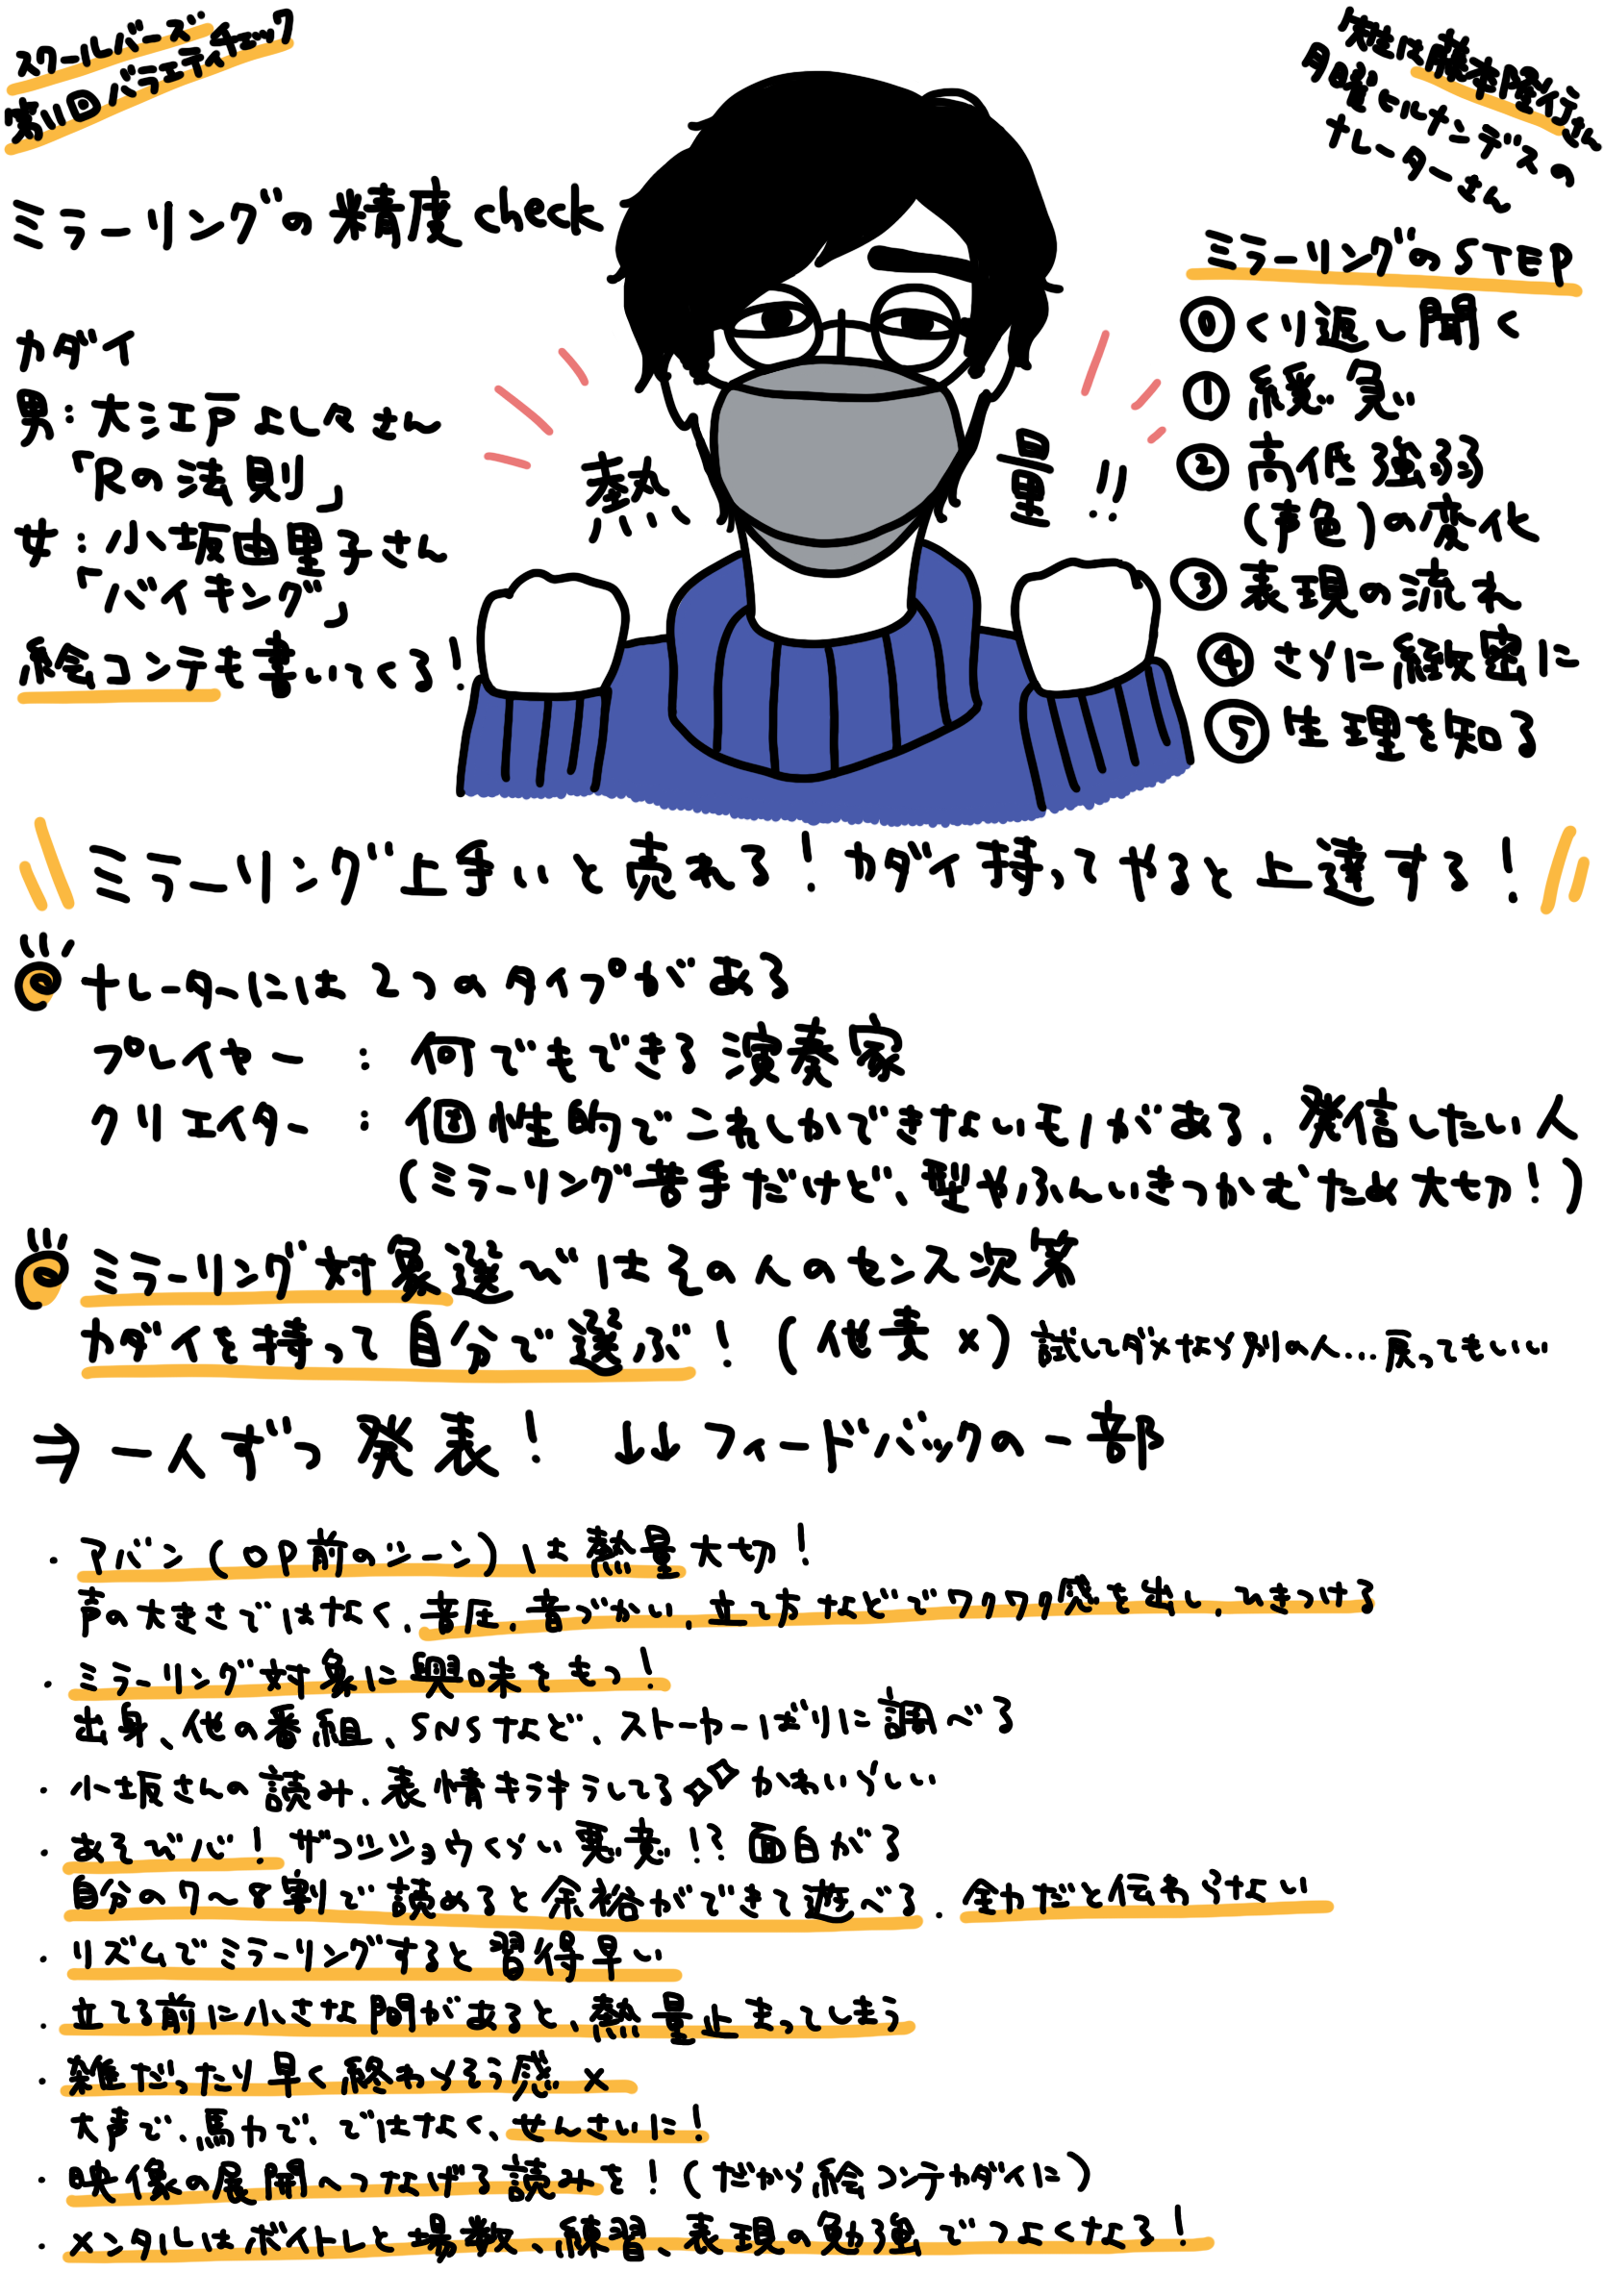 スクールバーズ
第11回バラエティチェック
先生は藤本隆行さん
月曜ヒルナンデスの
ナレーターさん
ミラーリングの精度check
カダイ
男:大江戸よし々さん
「Rの法則」
女:小坂由里子さん
「バイキング」
絵コンテも書いてくる!
熱量!!
ミラーリングのSTEP
⓪くり返し聞く
①緩急
②高低強弱
(声色)の変化
③表現の流れ
④さらに緻密に
⑤生理を知る
ミラーリング上手いと売れる!カダイ持ってやると上達する!
ナレーターには2つのタイプがある
プレイヤー:何でもできる演奏家
クリエイター:個性的でこれしかできないモノがある、発信したい人
(ミラーリング苦手だけど、型やふんいきつかむため大切!)
ミラーリング対象選びはその人のセンス次第
カダイを持って自分で選ぶ!(他責×)試してダメなら別の人...戻ってもいい
⇒一人ずつ発表! ↓↓フィードバックの一部
・アバン(OP前のシーン)は熱量大切!
声の大きさではなく、音圧、音づかい、立て方などでワクワク感を出し、ひきつける
・ミラーリング対象に興味をもつ!
出身、他の番組、SNSなど、ストーカーばりに調べる
・小坂さんの読み、表情キラキラしてる✧✧かわいらしい
・あそび心!ザコシショウくらい悪意!?面白がる
自分の7〜8割で読めると余裕ができて遊べる、全力だと伝わらない
・リズムでミラーリングすると習得早い
・立てる前に小さな間があると、熱量止まってしまう
・雑だったり早く終わらそう感×
大声で、馬力で、ではなく、せんさいに!
・映像の展開へつなげる読みを!(だから絵コンテカダイに)
・メンタルはボイトレと場数、練習、表現の勉強でつよくなる!